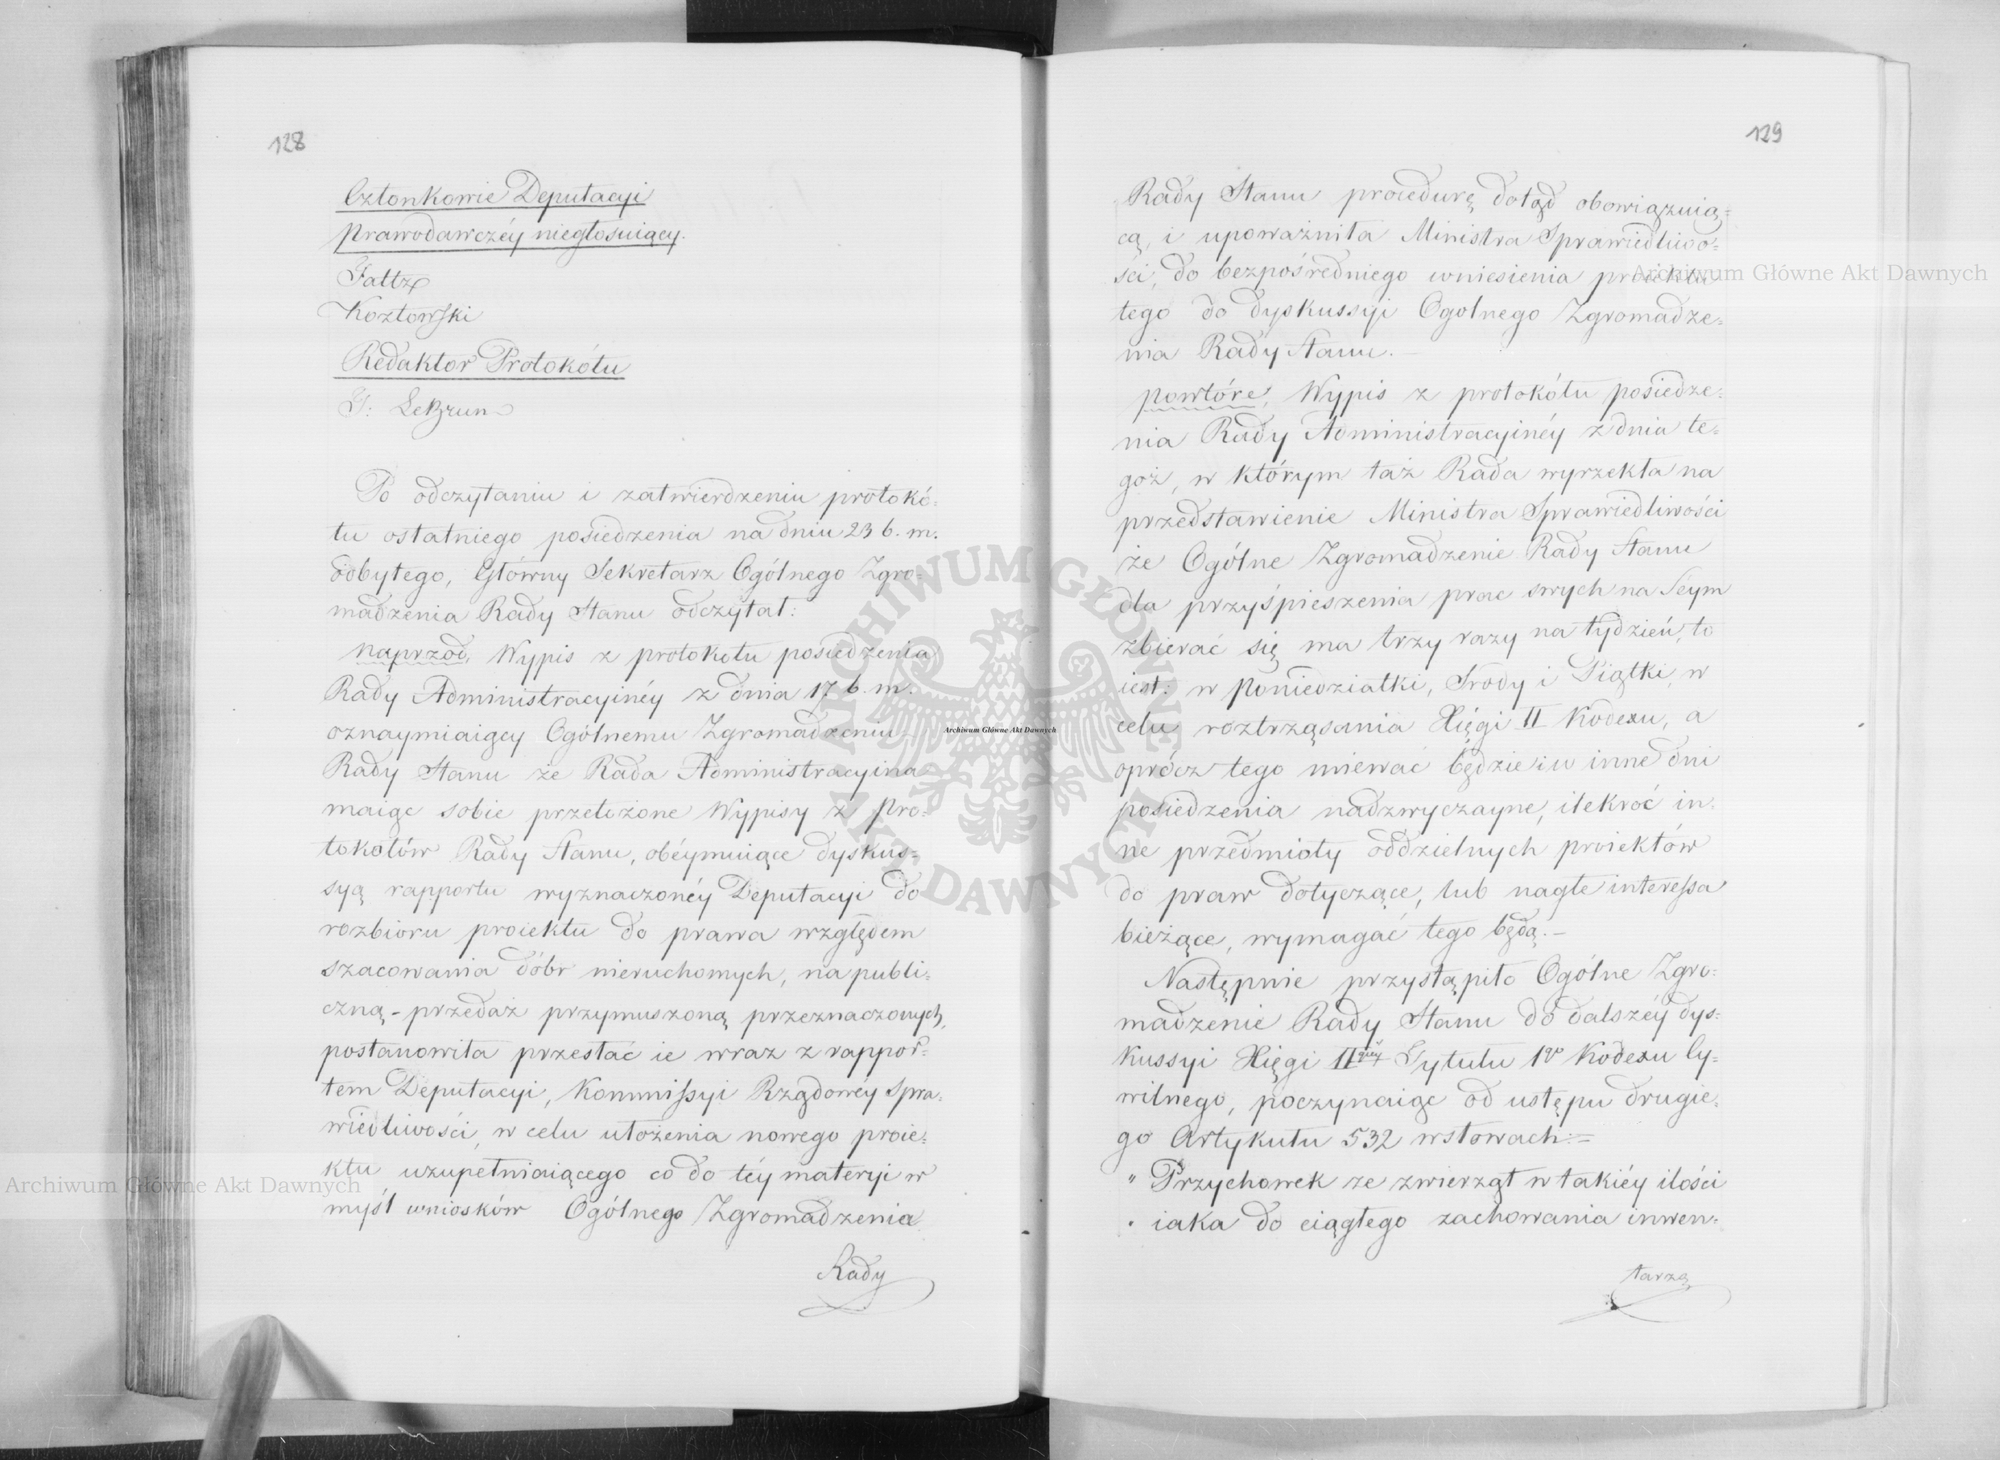 128
Członkowie Deputacyi
Prawodawczéy niegłosuiący.
Faltz
Kozłowski
Redaktor Protokółu
J: LeBrun
Po odczytaniu i zatwierdzeniu protokó-
łu ostatniego posiedzenia na dniu 23 b. m.
odbytego, Główny Sekretarz Ogólnego Zgro-
madzenia Rady Stanu odczytał:
naprzod, Wypis z protokołu posiedzenia
Rady Administracyinéy z dnia 17 b. m.
oznaymiaiący Ogólnemu Zgromadzeniu
Rady Stanu że Rada Administracyina
maiąc sobie przełożone Wypisy z Pro-
tokołów Rady Stanu, obéymuiące dyskus-
syą rapportu wyznaczonéy Deputacyi do
rozbioru proiektu do prawa względem
szacowania dóbr nieruchomych, na publi-
czną - przedaż przymuszoną przeznaczonych,
postanowiła przesłać ie wraz z rappor-
tem Deputacyi, Kommissyi Rządowéy Spra-
wiedliwości, w celu ułożenia nowego proie-
ktu uzupełniaiącego co do téy materyi w
myśl wniosków Ogólnego Zgromadzenia
Rady
129
Rady Stanu procedurę dotąd obowiązuią-
cą, i upoważniła Ministra Sprawiedliwo-
ści, do bezpośredniego wniesienia proiektu
tego do dyskussyi Ogolnego Zgromadze-
nia Rady Stanu. —
powtóre, Wypis z protokółu posiedze-
nia Rady Administracyinéy z dnia te-
goż, w którym taż Rada wyrzekła na
przedstawienie Ministra Sprawiedliwości
że Ogólne Zgromadzenie Rady Stanu
dla przyśpieszenia prac swych na Séym
zbierać się ma trzy razy na tydzień, to
iest: w Poniedziałki, Srody i Piątki, w
celu roztrząsania Xięgi II Kodexu, a
oprócz tego miewać będzie i w inne dni
posiedzenia nadzwyczayne, ilekroć in-
ne przedmioty oddzielnych proiektów
do praw dotyczące, lub nagłe interessa
bieżące, wymagać tego będą. —
Następnie przystąpiło Ogólne Zgro-
madzenie Rady Stanu do dalszéy dys-
kussyi Xięgi II giéy Tytułu 1go Kodexu Cy-
wilnego, poczynaiąc od ustępu drugie-
go Artykułu 532 w słowach: =
" Przychowek ze zwierząt w takiéy ilości
" iaka do ciągłego zachowania inwen-
tarza
Archiwum Główne Akt Dawnych
Archiwum Główne Akt Dawnych
Archiwum Główne Akt Dawnych
ARCHIWUM GŁÓWNE AKT DAWNYCH